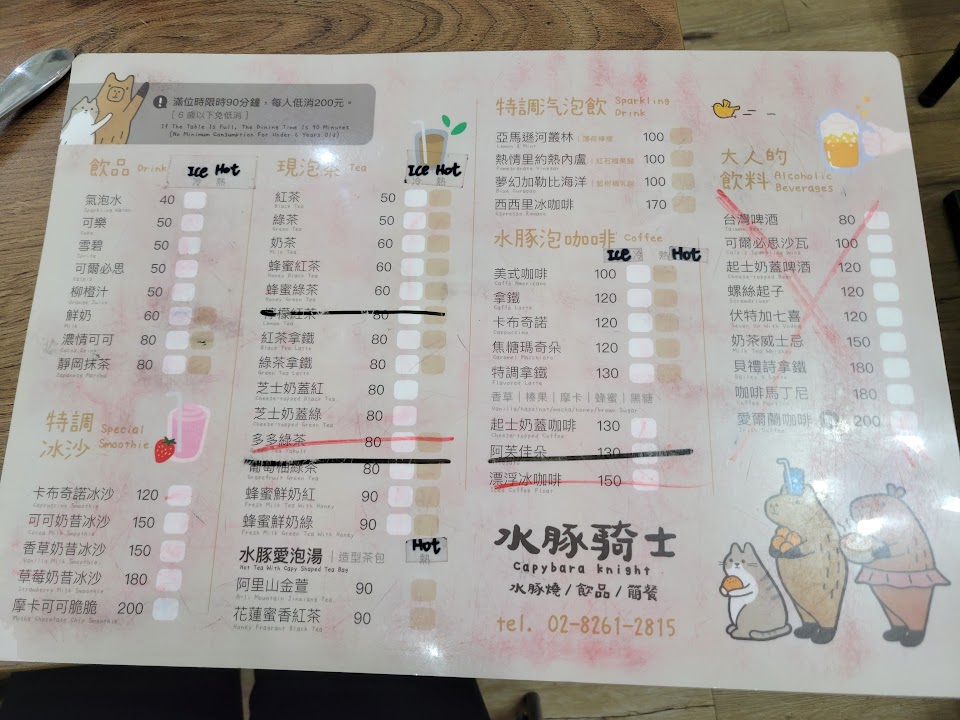 滿位時限時90分鐘，每人低消200元。
[ 6 歲以下免低消 ]
If The Table Is Full, The Dining Time Is 90 Minutes
(No Minimum Consumption For Under 6 Years Old)
飲品 Drink Ice Hot
氣泡水 40
Sparkling Water
可樂 50
Coke
雪碧 50
Sprite
可爾必思 50
柳橙汁 50
Orange Juice
鮮奶 60
Milk
濃情可可 80
靜岡抹茶 80
Japanese Matcha
特調冰沙 Special Smoothie
卡布奇諾冰沙 120
Cappuccino Smoothie
可可奶昔冰沙 150
Cocoa Milk Smoothie
香草奶昔冰沙 150
Vanilla Milk Smoothie
草莓奶昔冰沙 180
Strawberry Milk Smoothie
摩卡可可脆脆 200
Mocha Chocolate Chip Smoothie
現泡茶 Tea Ice Hot
冷 熱
紅茶 50
Black Tea
綠茶 50
Green Tea
奶茶 60
Milk Tea
蜂蜜紅茶 60
Honey Black Tea
蜂蜜綠茶 60
Honey Green Tea
檸檬紅茶 80
Lemon Tea
紅茶拿鐵 80
Black Tea Latte
綠茶拿鐵 80
Green Tea Latte
芝士奶蓋紅 80
Cheese-topped Black Tea
芝士奶蓋綠 80
Cheese-topped Green Tea
多多綠茶 80
葡萄柚綠茶 80
Grapefruit Green Tea
蜂蜜鮮奶紅 90
Fresh Milk Tea With Honey
蜂蜜鮮奶綠 90
Fresh Milk Green Tea With Honey
水豚愛泡湯 | 造型茶包 Hot
熱
Hot Tea With Capy Shaped Tea Bag
阿里山金萱 90
Ali Mountain Jinxuan Tea
花蓮蜜香紅茶 90
Honey Fragrant Black Tea
特調汽泡飲 Sparkling Drink
亞馬遜河叢林 | 薄荷檸檬 100
Lemon & Mint
熱情里約熱內盧 | 紅石榴果醋 100
Pomegranate Vinegar
夢幻加勒比海洋 | 藍柑橘乳酸 100
Blue Curacao
西西里冰咖啡 170
Espresso Romano
水豚泡咖啡 Coffee
Ice 冷 熱 Hot
美式咖啡 100
Caffè Americano
拿鐵 120
Caffè Latte
卡布奇諾 120
Cappuccino
焦糖瑪奇朵 120
Caramel Macchiato
特調拿鐵 130
Flavored Latte
香草 | 榛果 | 摩卡 | 蜂蜜 | 黑糖
Vanilla/hazelnut/mocha/honey/brown Sugar
起士奶蓋咖啡 130
Cheese-topped Coffee
阿芙佳朵 130
漂浮冰咖啡 150
Iced Coffee Float
大人的飲料 Alcoholic Beverages
台灣啤酒 80
Taiwan Beer
可爾必思沙瓦 100
起士奶蓋啤酒 120
Cheese-topped Beer
螺絲起子 120
Screwdriver
伏特加七喜 120
Seven Up With Vodka
奶茶威士忌 150
Milk Tea Whiskey
貝禮詩拿鐵 180
咖啡馬丁尼 180
愛爾蘭咖啡 200
Irish Coffee
水豚騎士
Capybara knight
水豚燒/飲品/簡餐
tel. 02-8261-2815